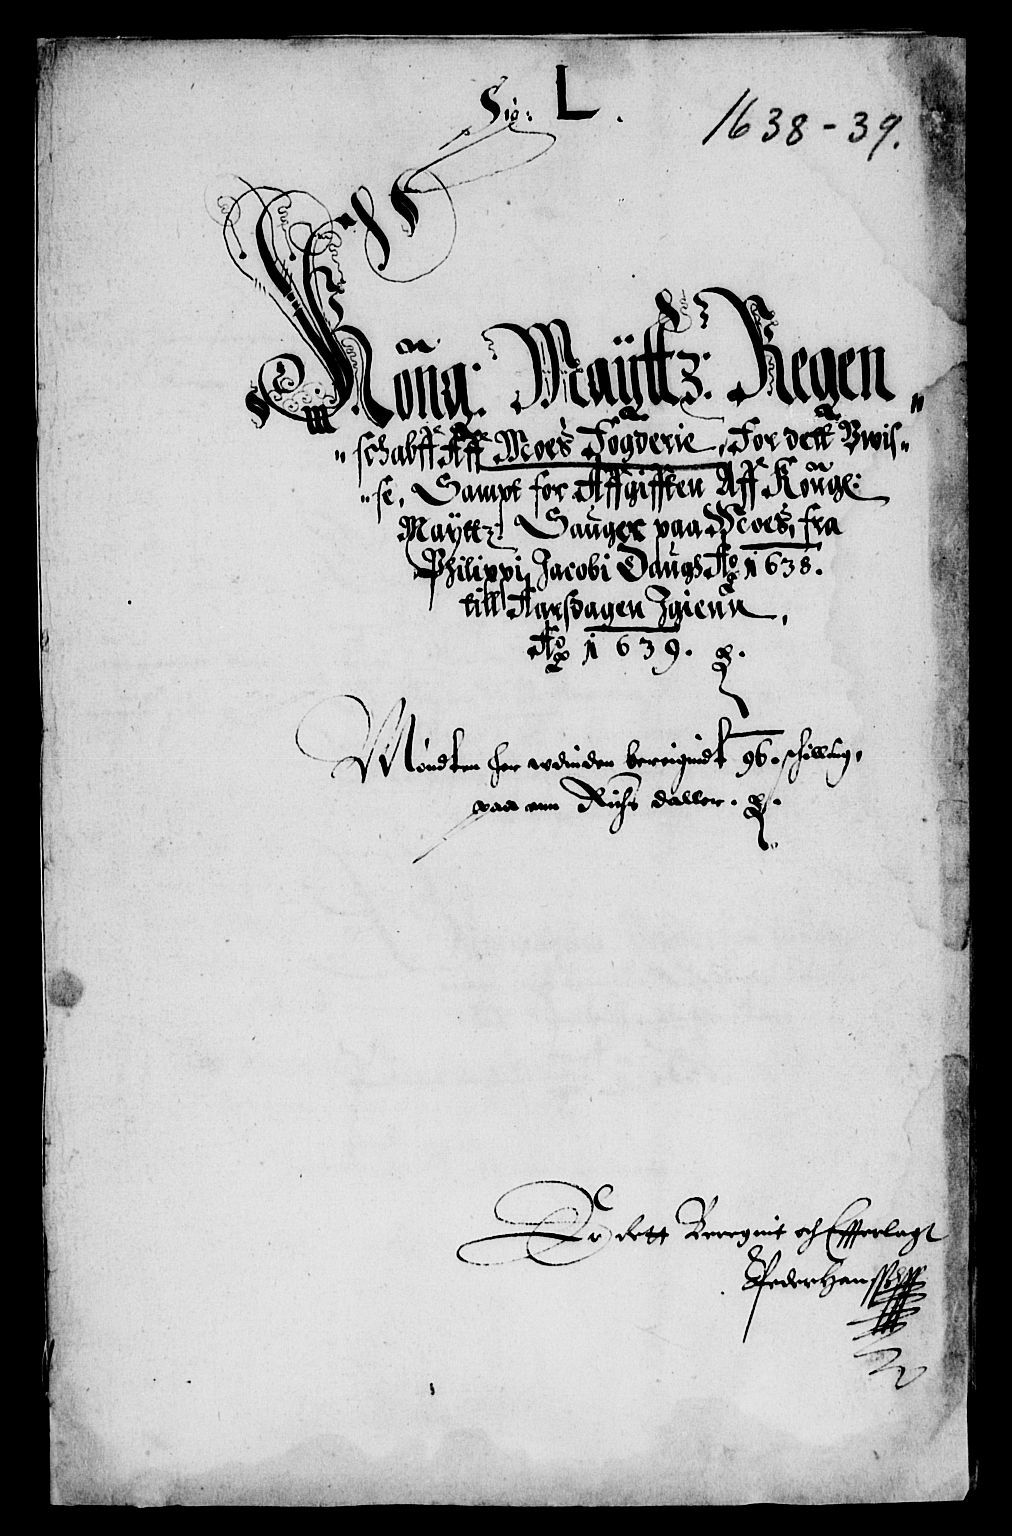 Sig: L.
1638-39.
Kong: Mayttz: Regen
schabff Aff Moes Fogderie, For dett Vwis
se, Sampt for Affgifften Aff Kongl:
Mayttz: Sauger paa Moes, fra
Philippi Jacobi Daugh Ao 1638.
till Aarsdagen Igienn,
Ao 1639.
Möndten her vdinden beregnidt 96. schilling,
paa enn Richs daller.
Er dett Beregnit och Efferlagt
Peder Hanssen